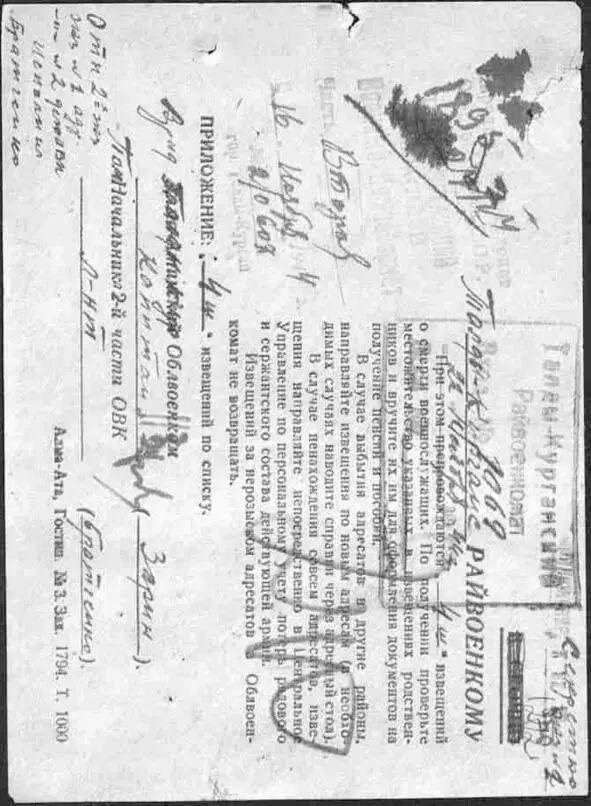 Секретно
Талды-Курганский
Райвоенкомат
Талды-Кургане РАЙВОЕНКОМУ
При этом препровождаются „4 шт“ извещений
о смерти военнослужащих. По получении проверьте
местожительство указанных в извещениях родствен-
ников и вручите их им для оформления документов на
получение пенсий и пособий.
В случае выбытия адресатов в другие районы,
направляйте извещения по новым адресам (в необхо-
димых случаях наводите справки через адресный стол).
В случае ненахождения совсем адресатов, изве-
щения направляйте непосредственно в Центральное
Управление по персональному учету потерь рядового
и сержантского состава действующей армии.
Извещений за нерозыском адресатов в Облвоен-
комат не возвращать.
ПРИЛОЖЕНИЕ: „4 шт“ извещений по списку.
Часть Вторая
16 Ноября 4
2/0604
гор. Талды-Курган
Врид Облвоенком
капитан Зарин ).
Пом Начальника 2-й части ОВК
Л-нт (Братченко).
Алма-Ата, Гостип. № 3. Зак. 1794. Т. 1000
Отп 2
экз № 1 адр
№ 2 дело
Исполнил
Братченко